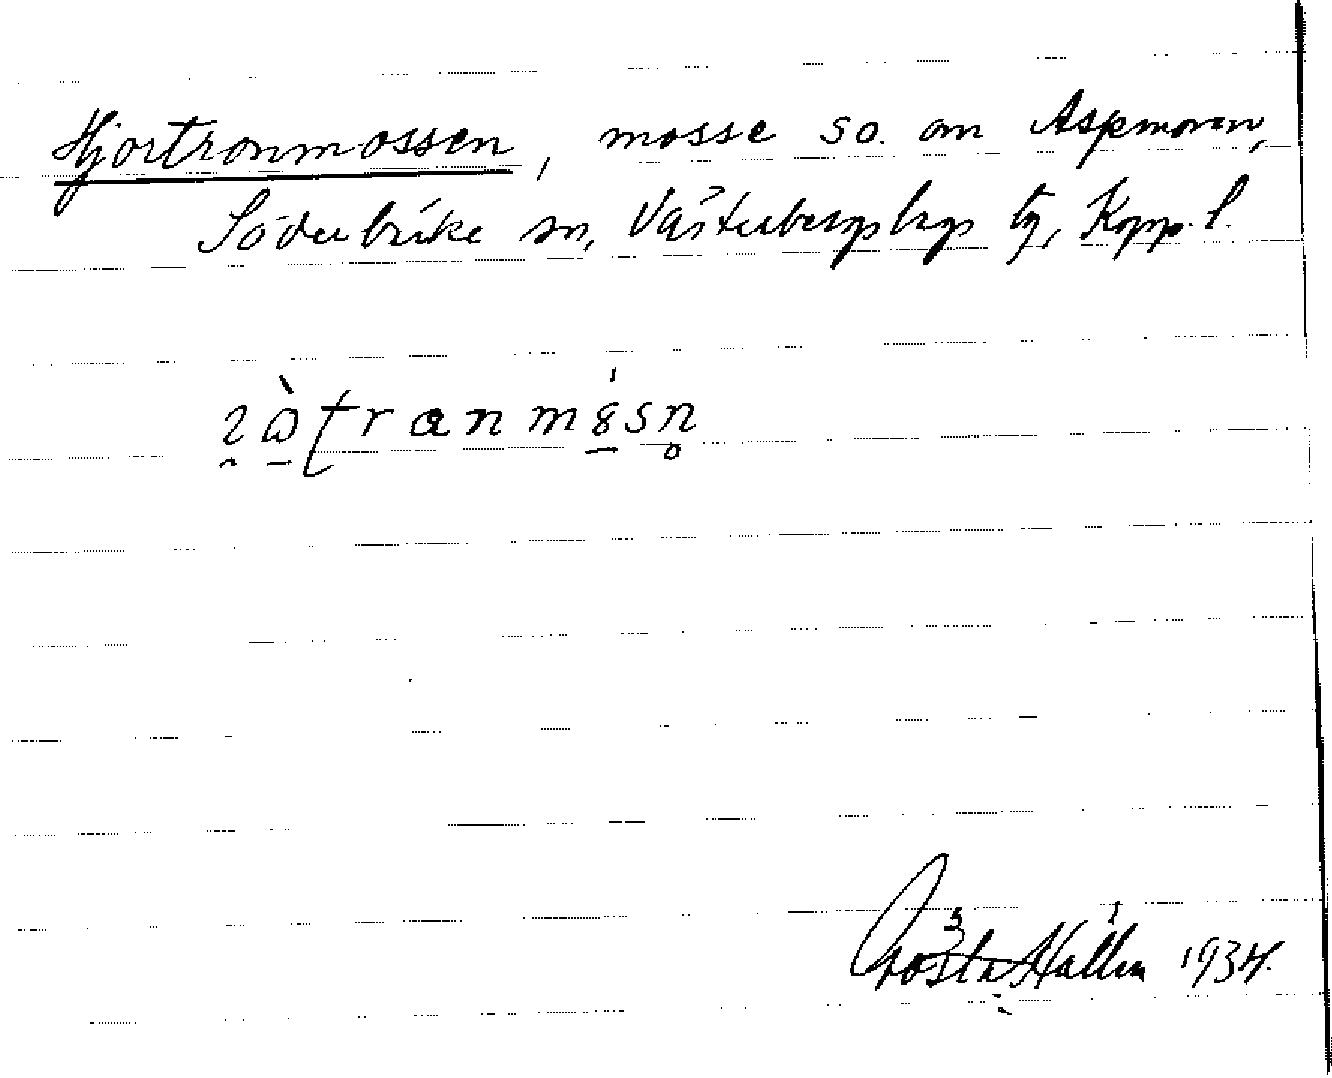 Hjortronmossen, mosse so. om Aspmoren,
Söderbärke sn, Västerbergslags tg, Kopp. l.
Gösta Hallin 1934.